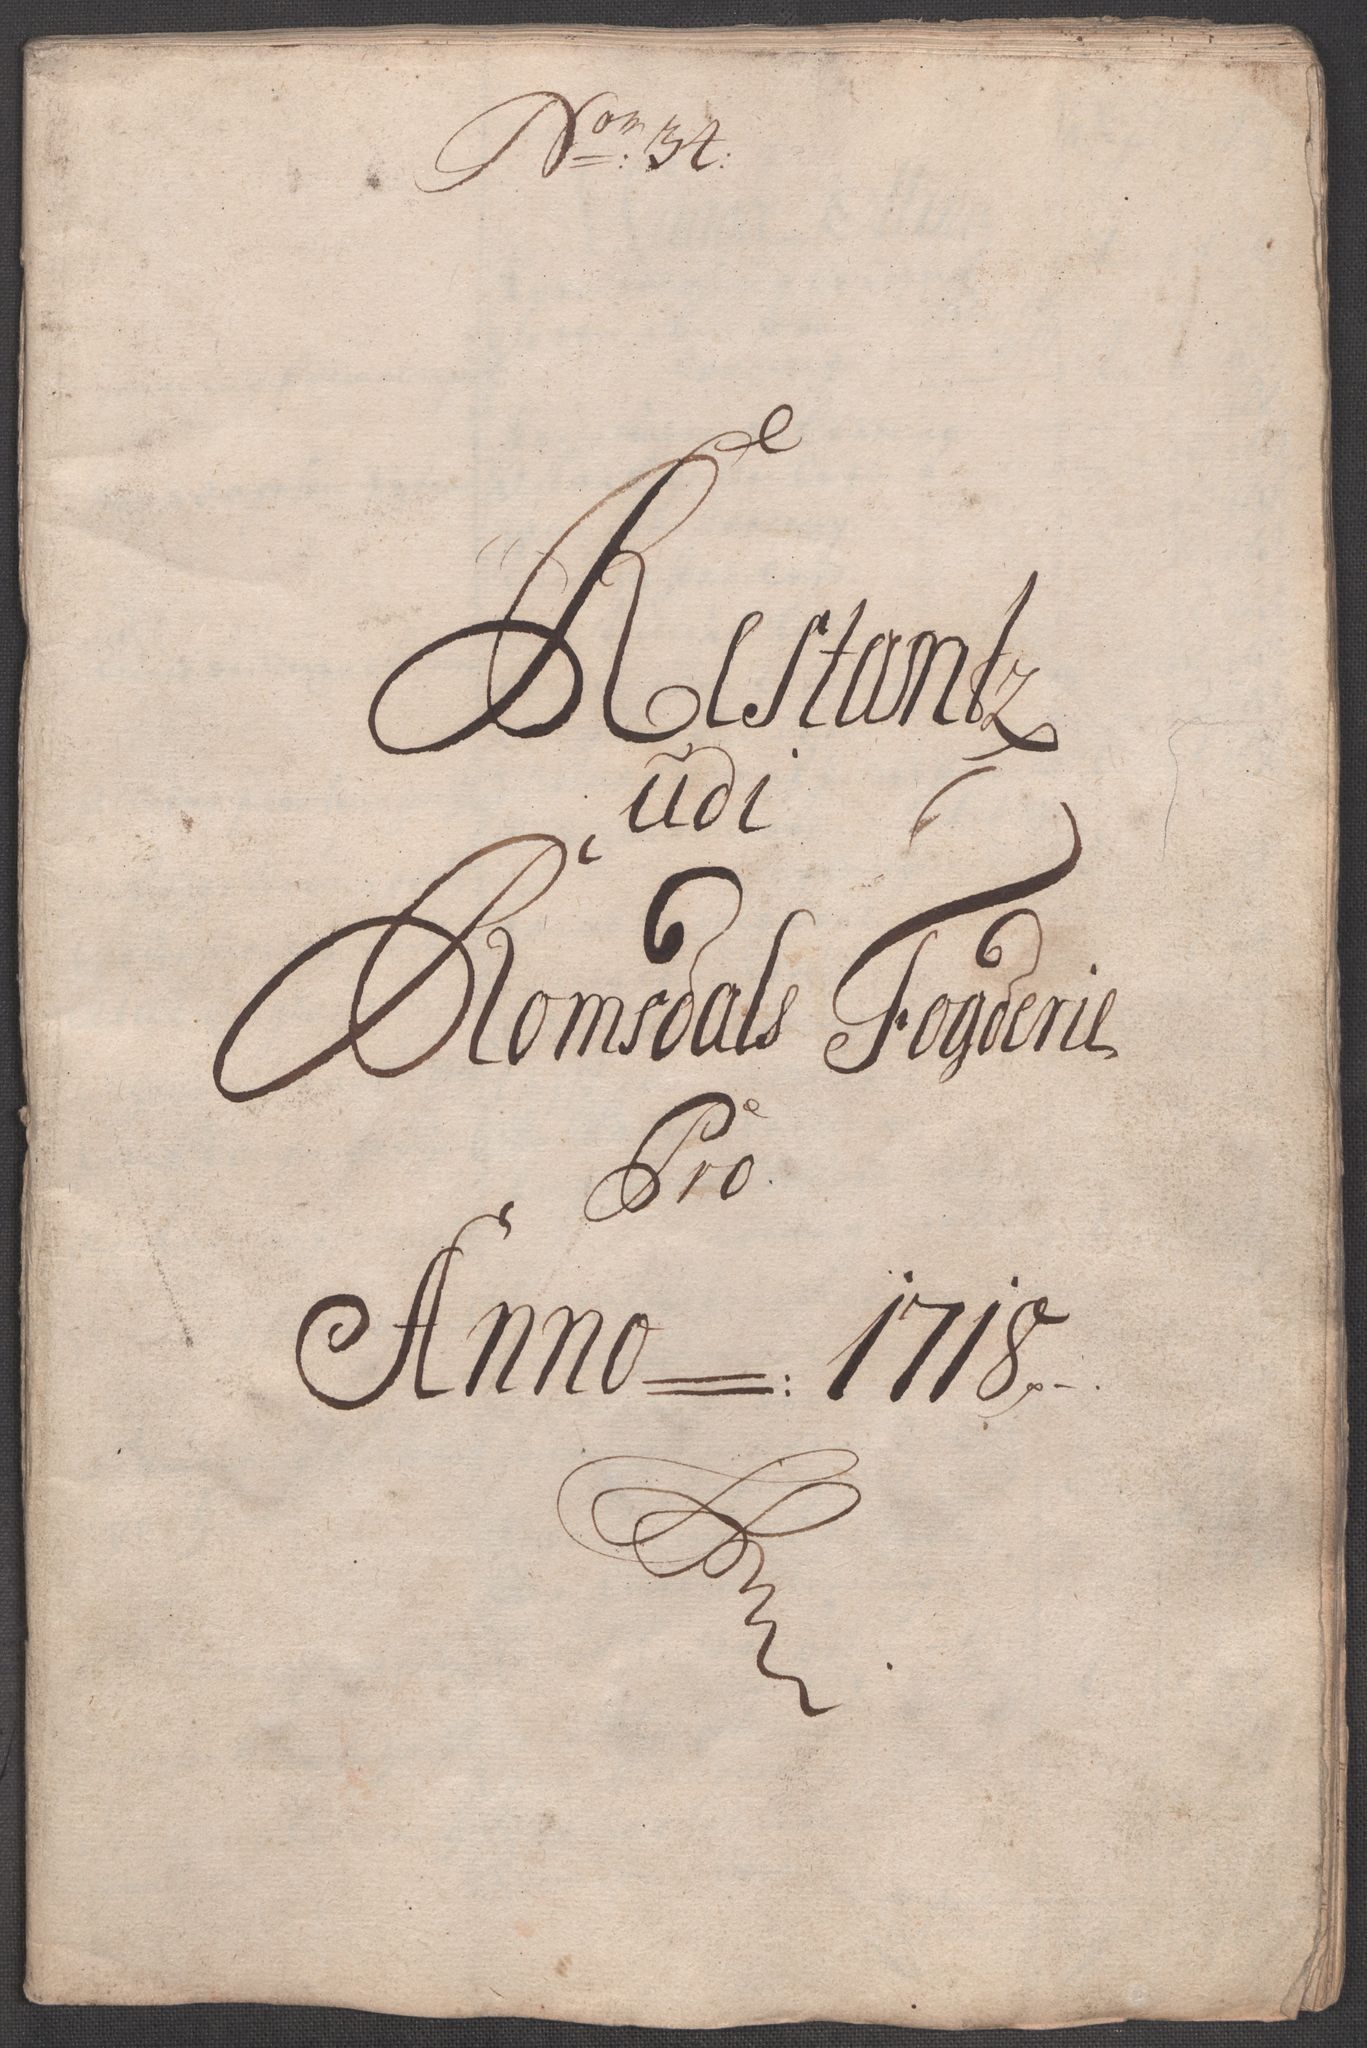 Nom: 34:
Restantz
udi
Romsdals Fogderie
Pro.
Anno =: 1718.